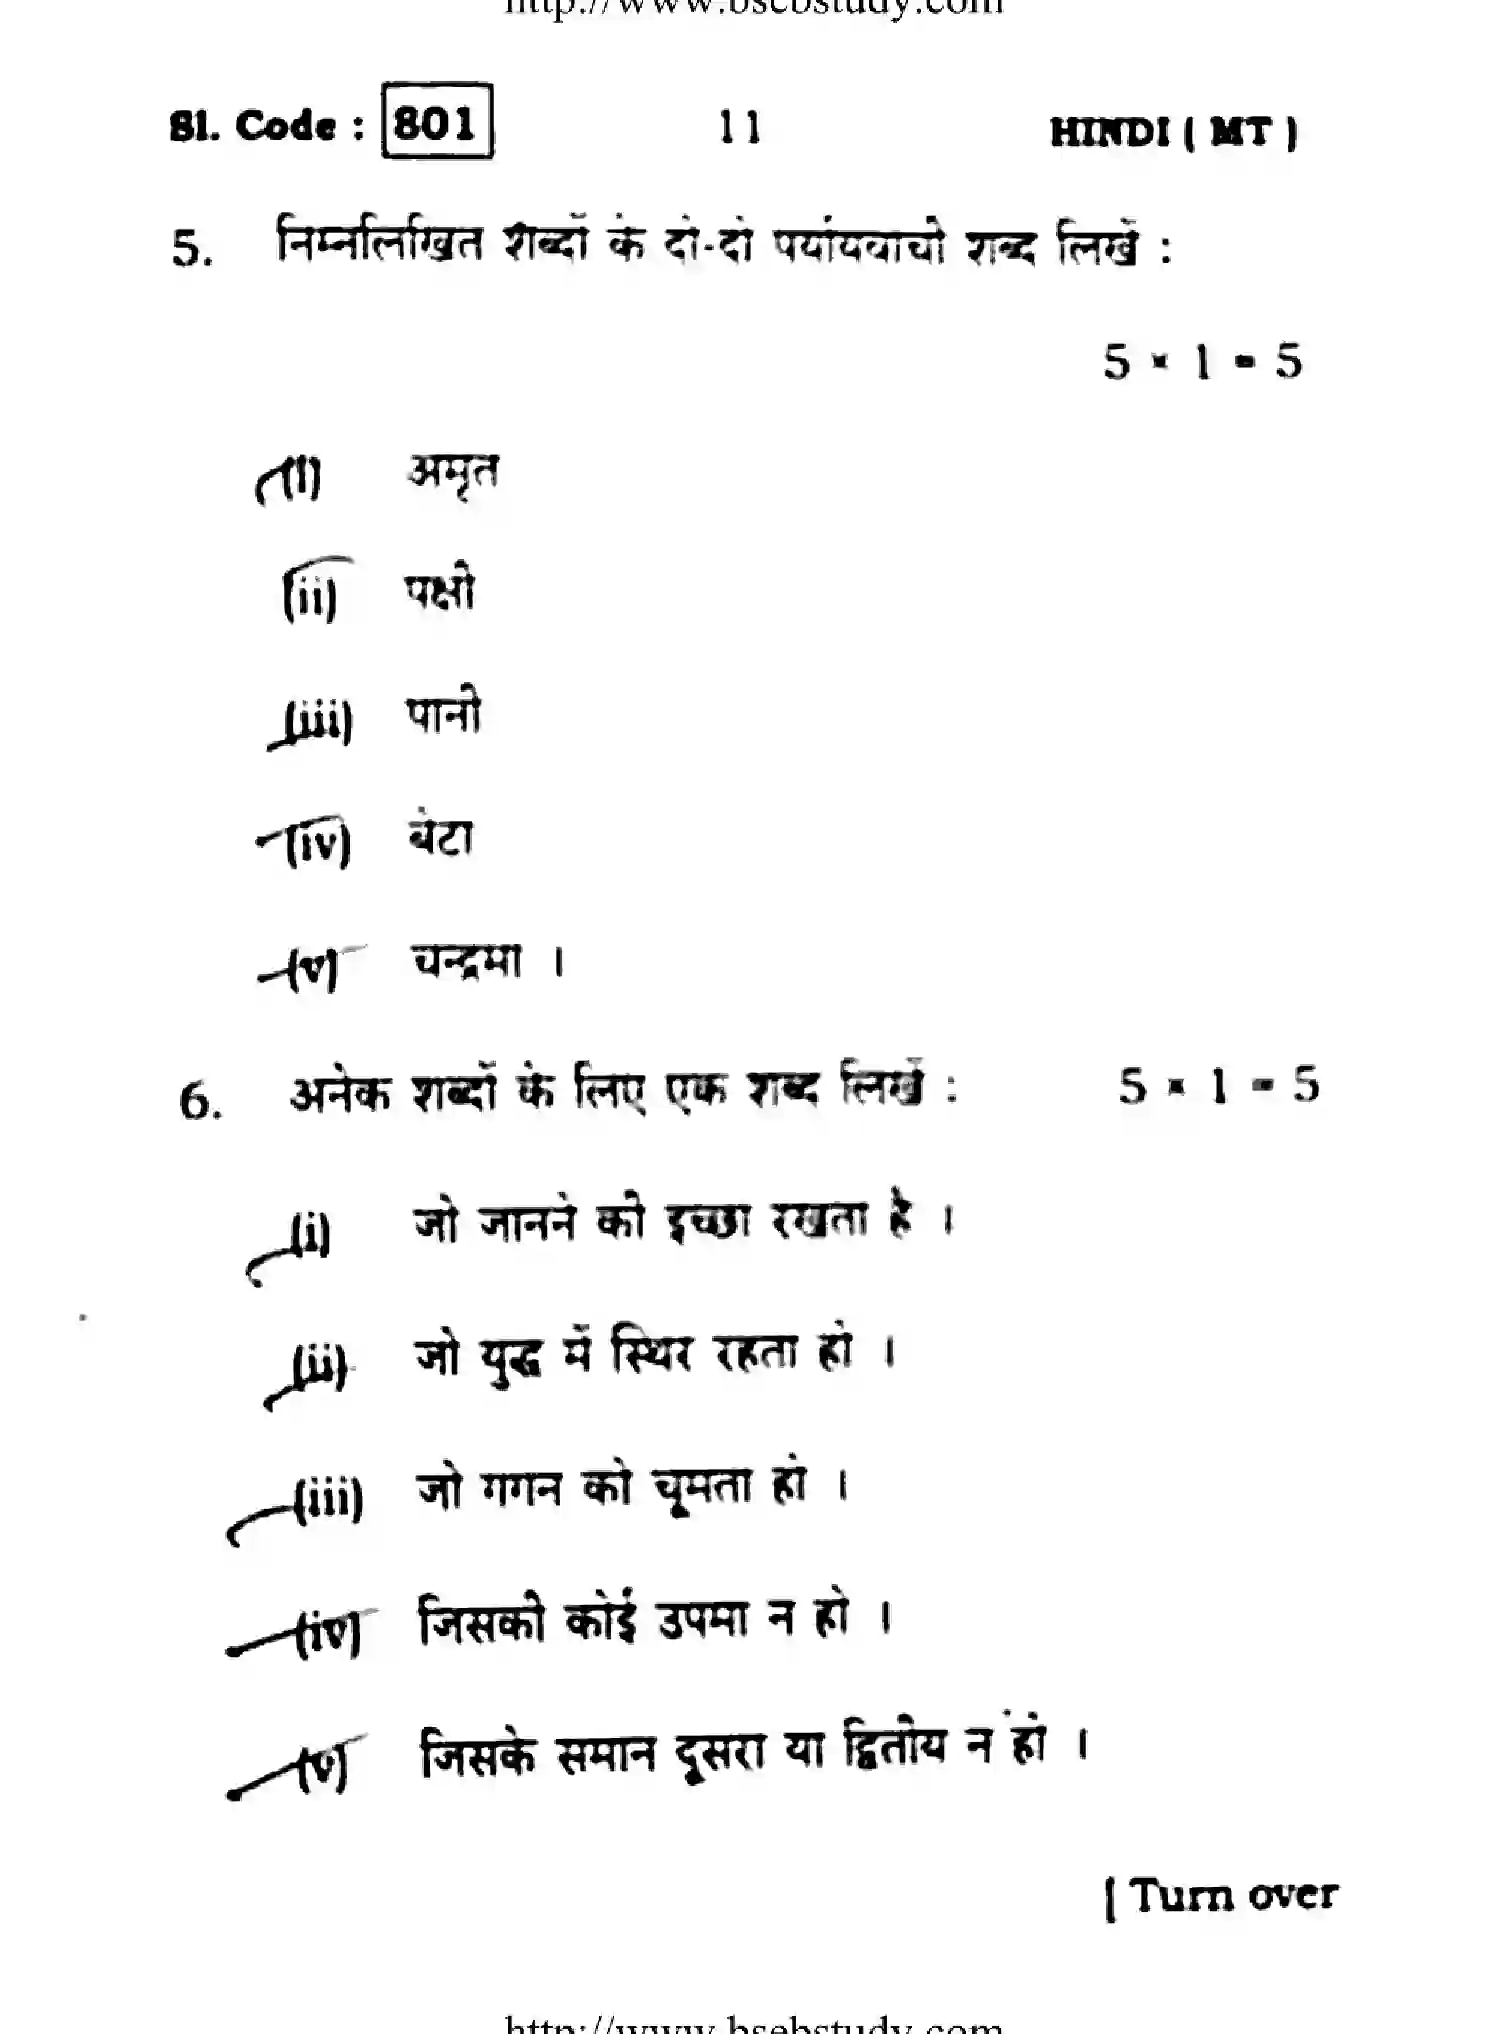 http://www.bsebstudy.com
Sl. Code : 801 11 HINDI ( MT )
5. निम्नलिखित शब्दों के दो-दो पर्यायवाची शब्द लिखें :
5 × 1 = 5
(i) अमृत
(ii) पक्षी
(iii) पानी
(iv) बेटा
(v) चन्द्रमा ।
6. अनेक शब्दों के लिए एक शब्द लिखें : 5 × 1 = 5
(i) जो जानने की इच्छा रखता है ।
(ii) जो युद्ध में स्थिर रहता हो ।
(iii) जो गगन को चूमता हो ।
(iv) जिसकी कोई उपमा न हो ।
(v) जिसके समान दूसरा या द्वितीय न हो ।
[ Turn over
http://www.bsebstudy.com